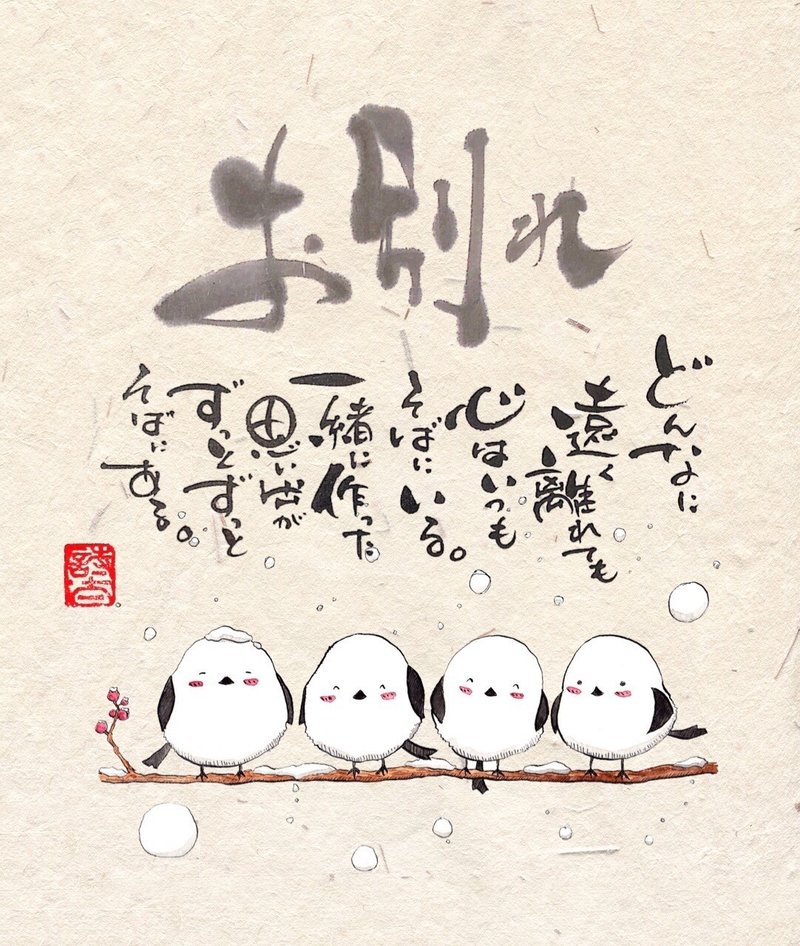 お別れ
どんなに
遠く離れても
心はいつも
そばにいる。
一緒に作った
思い出が
ずっとずっと
そばにある。